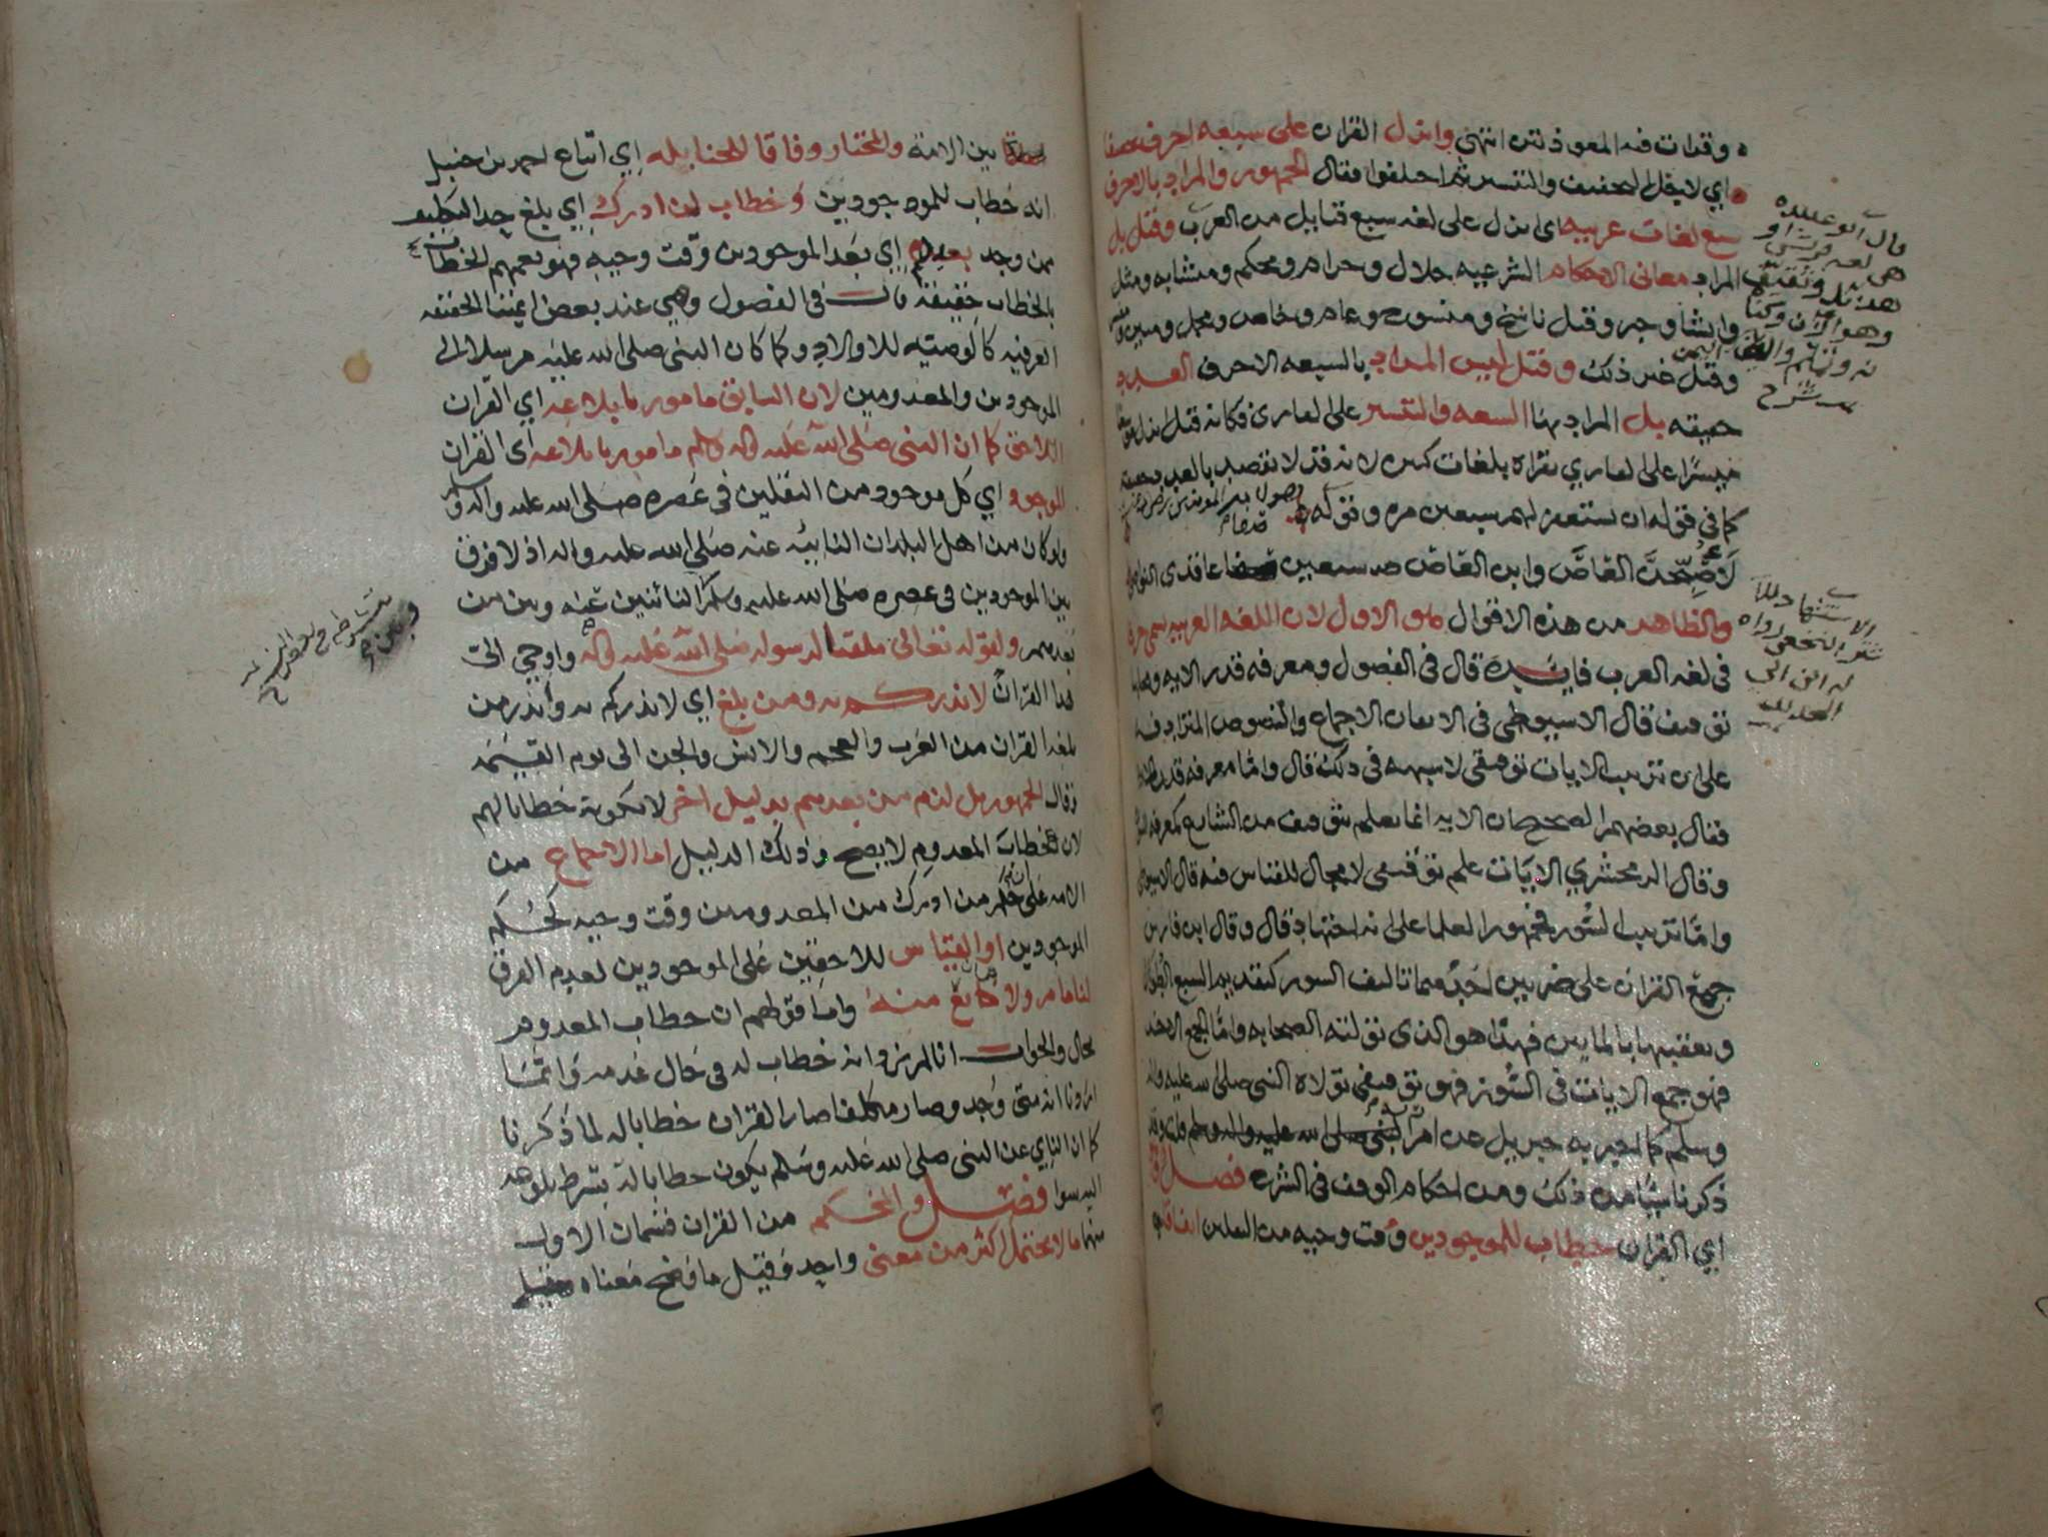 وقرات فيه المعوذتين انتهى وانزل القران على سبعه احرف
اي لاجل التخفيف والتيسير ثم اختلفوا فقال الجمهور والمراد بالاحرف
سبع لغات عربيه اي انزل على لغه سبع قبايل من العرب وقيل بل
المراد معاني الاحكام الشرعيه حلال وحرام ومحكم ومتشابه ومثل
وانشا وخبر وقيل ناسخ ومنسوخ وعام وخاص ومجمل ومبين
وقيل غير ذلك وقيل ليس المراد بالسبعه الاحرف العدد
حقيقه بل المراد بها السعه والتيسير على القاري فكانه قيل انزل
ميسرًا على القاري يقراه بلغات كثيره لانه قد لا يقصد بالعدد حقيقته
كما في قوله ان تستغفر لهم سبعين مره وقوله
لاصبحن العاص وابن العاص سبعين عاقدي النواصي
والظاهر من هذه الاقوال هو الاول لان اللغه العربيه تسمى حرفا
في لغه العرب فايده قال في الفصول ومعرفه قدر الايه
توقيف قال الاسيوطي في الاتقان الاجماع والنصوص المترادفه
على ان ترتيب الايات توقيفي لا شبهه في ذلك قال واما معرفه
فقال بعضهم الصحيح ان الايه انما تعلم بتوقيف من الشارع كمعرفه
وقال الزمخشري الايات علم توقيفي لا مجال للقياس فيه قال الاسيوطي
واما ترتيب السور فجمهور العلما على انه اجتهاد قال وقال ابن فارس
جمع القران على ضربين احدهما تاليف السور كتقديم السبع الطوال
وتعقيبها بالمايين فهذا هو الذي تولته الصحابه واما الجمع الاخر
فهو جمع الايات في السور فهو توقيفي تولاه النبي صلى الله عليه واله
وسلم كما اخبر به جبريل عن امر
ذكرنا شيًا من ذلك ومن احكام الوقف في الشرح فصل
اي القران خطاب للموجودين وقت وحيه من الثقلين اتفاقا
بين الامة والمختار وفاقا للحنابله اي اتباع احمد بن حنبل
انه خطاب للموجودين وخطاب لمن ادرك اي بلغ حد التكليف
ممن وجد بعدهم اي بعد الموجودين وقت وحيه فهو يعمهم الخطاب
بالخطاب حقيقة قال في الفصول وهي عند بعض ايمتنا الحقيقه
العرفيه كالوصيه للاولاد وكما كان النبي صلى الله عليه مرسلا الى
الموجودين والمعدومين لان السابق مامور بابلاغه اي القران
اللاحق كما ان النبي صلى الله عليه واله وسلم مامور بابلاغه اي القران
الموجود اي كل موجود من الثقلين في عصره صلى الله عليه واله وسلم
ولو كان من اهل البلدان النائيه عنه صلى الله عليه واله اذ لا فرق
بين الموجودين في عصره صلى الله عليه وسلم النائين عنه وبين من
بعدهم ولقوله تعالى ملقنا لرسوله صلى الله عليه واله واوحي الي
هذا القران لانذركم به ومن بلغ اي لانذركم به وانذر من
بلغه القران من العرب والعجم والانس والجن الى يوم القيمه
وقال الجمهور بل لزم من بعدهم بدليل اخر لا بكونه خطابا لهم
لان خطاب المعدوم لا يصح وذلك الدليل اما الاجماع من
الامه على ان حكم من ادرك من المعدومين وقت وحيه كحكم
الموجودين او القياس للاحقين على الموجودين لعدم الفرق
لنا ما مر ولا مانع منه واما قولهم ان خطاب المعدوم
محال والجواب انا لم نرد انه خطاب له في حال عدمه وانما
اردنا انه متى وجد وصار مكلفا صار القران خطابا له لما ذكرنا
كما ان النايي عن النبي صلى الله عليه وسلم يكون خطابا له بشرط بلوغه
اليه سوا فصل والمحكم من القران قسمان الاول
منهما ما لا يحتمل اكثر من معنى واحد وقيل ما وضح معناه
قال ابو عبيده
هي لغه قريش او
هذيل وثقيف